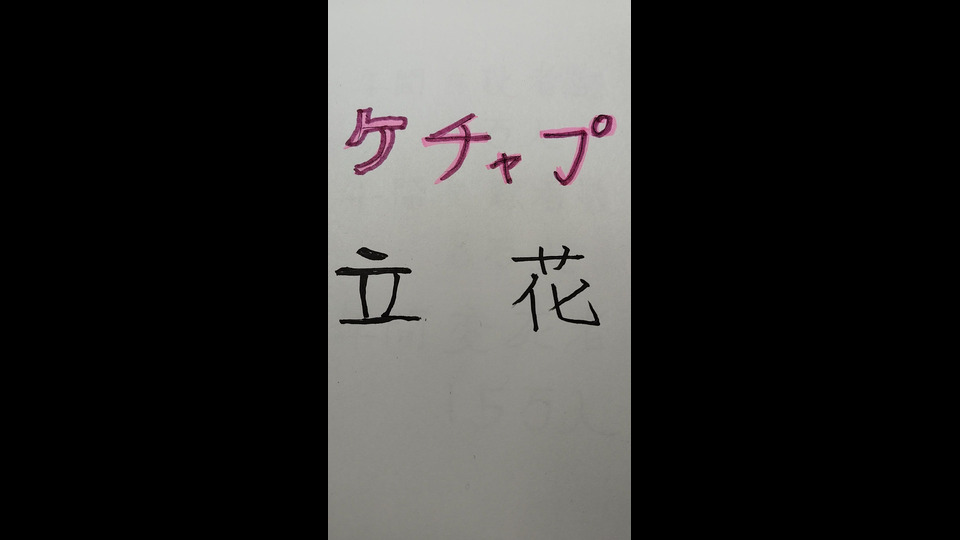 ケチャプ
立 花